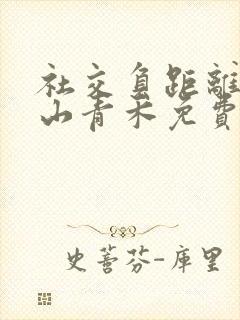 社交負距離
山青禾免費
史蒂芬-庫里